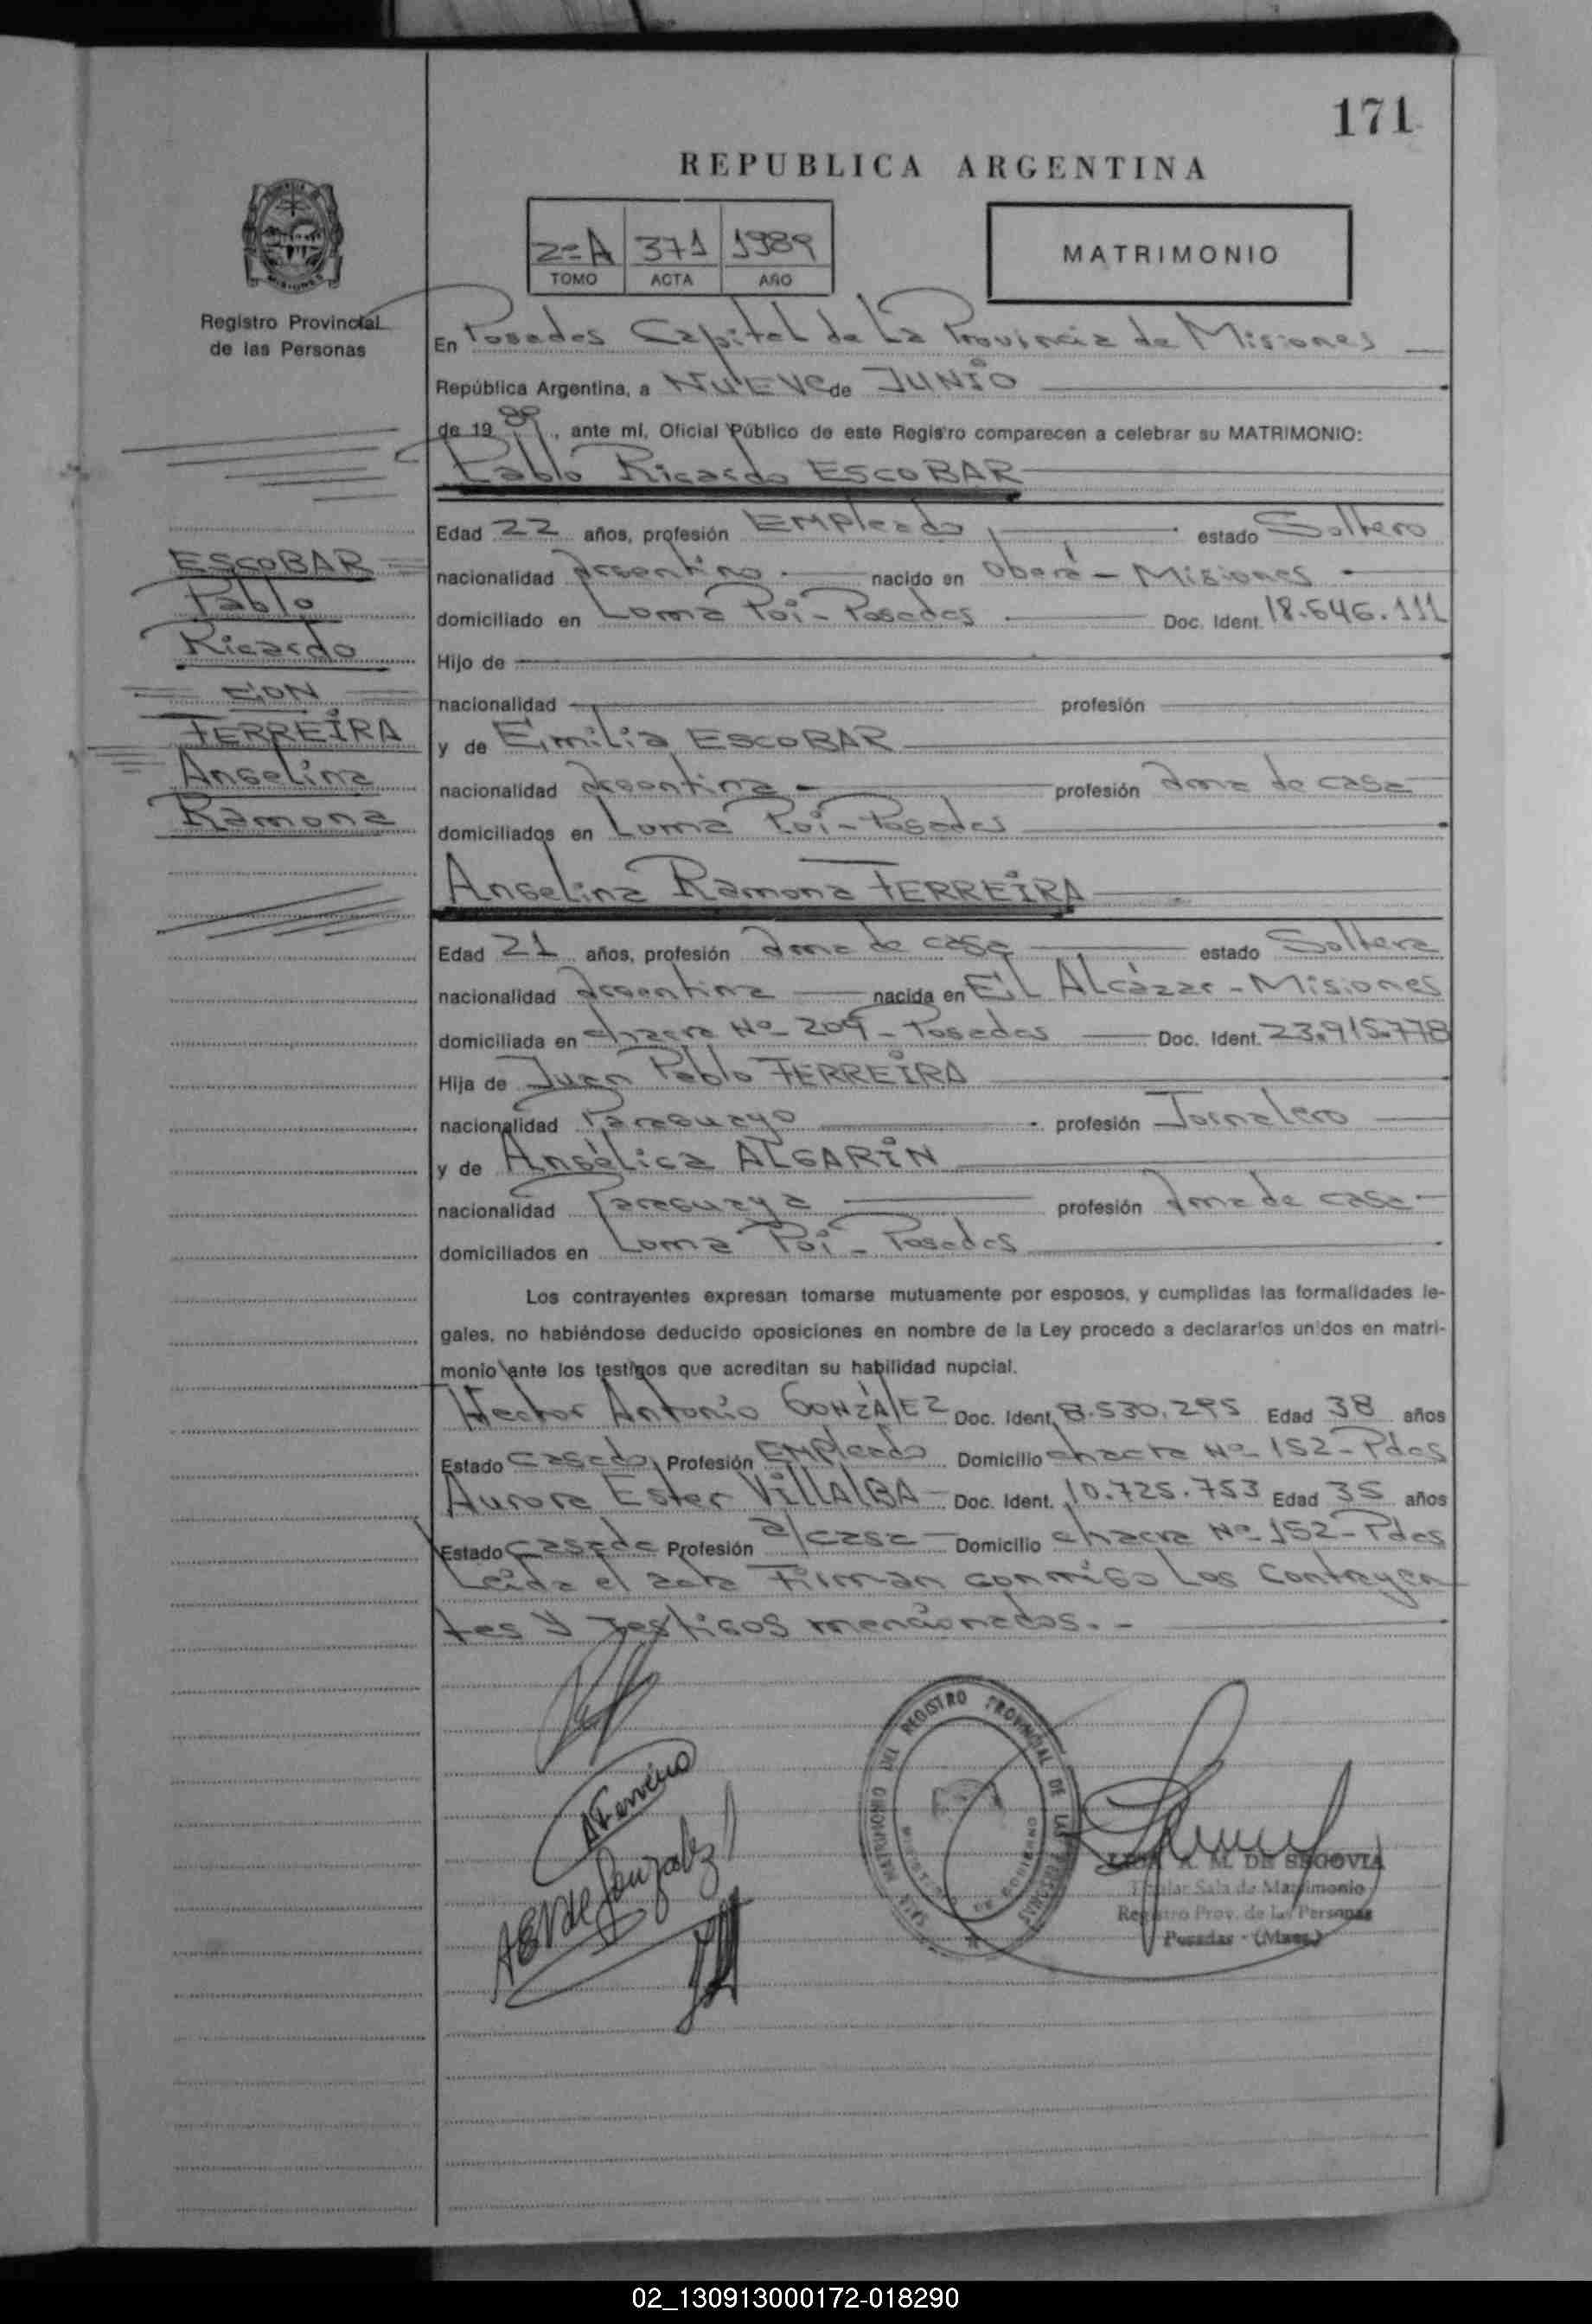 171
REPUBLICA ARGENTINA
2=A 371 1989
TOMO ACTA AÑO
MATRIMONIO
Registro Provincial
de las Personas
En Posadas Capital de La Provincia de Misiones
República Argentina, a NUEVE de JUNIO
de 19 89, ante mi, Oficial Público de este Registro comparecen a celebrar su MATRIMONIO:
Pablo Ricardo ESCOBAR
Edad 22 años, profesión EMpleado estado Soltero
nacionalidad argentino nacido en Oberá - Misiones
domiciliado en Loma Poi - Posadas Doc. Ident. 18.646.111
Hijo de
nacionalidad profesión
y de Emilia ESCOBAR
nacionalidad argentina profesión ama de casa
domiciliados en Loma Poi - Posadas
ESCOBAR
Pablo
Ricardo
CON
FERREIRA
Angelina
Ramona
Angelina Ramona FERREIRA
Edad 21 años, profesión ama de casa estado Soltera
nacionalidad argentina nacida en El Alcázar - Misiones
domiciliada en chacra Nº 209 - Posadas Doc. Ident. 23.915.778
Hija de Juan Pablo FERREIRA
nacionalidad Paraguayo profesión Jornalero
y de Angélica ALGARIN
nacionalidad Paraguaya profesión ama de casa
domiciliados en Loma Poi - Posadas
Los contrayentes expresan tomarse mutuamente por esposos, y cumplidas las formalidades le-
gales, no habiéndose deducido oposiciones en nombre de la Ley procedo a declararlos unidos en matri-
monio ante los testigos que acreditan su habilidad nupcial.
Hector Antonio GONZALEZ Doc. Ident. 8.530.295 Edad 38 años
Estado casado Profesión EMpleado Domicilio chacra Nº 152 - Pdas
Aurora Ester VILLALBA - Doc. Ident. 10.725.753 Edad 35 años
Estado casada Profesión a/casa - Domicilio chacra Nº 152 - Pdas
Leida el acta Firman conmigo Los Contrayen
tes y testigos mencionados. -
AFerreira
AEVde Gonzalez
REGISTRO PROVINCIAL DE LAS PERSONAS
MATRIMONIO DEL
A. M. DE SEGOVIA
Titular Sala de Matrimonio
Registro Prov. de las Personas
Posadas - (Mnes.)
02_130913000172-018290